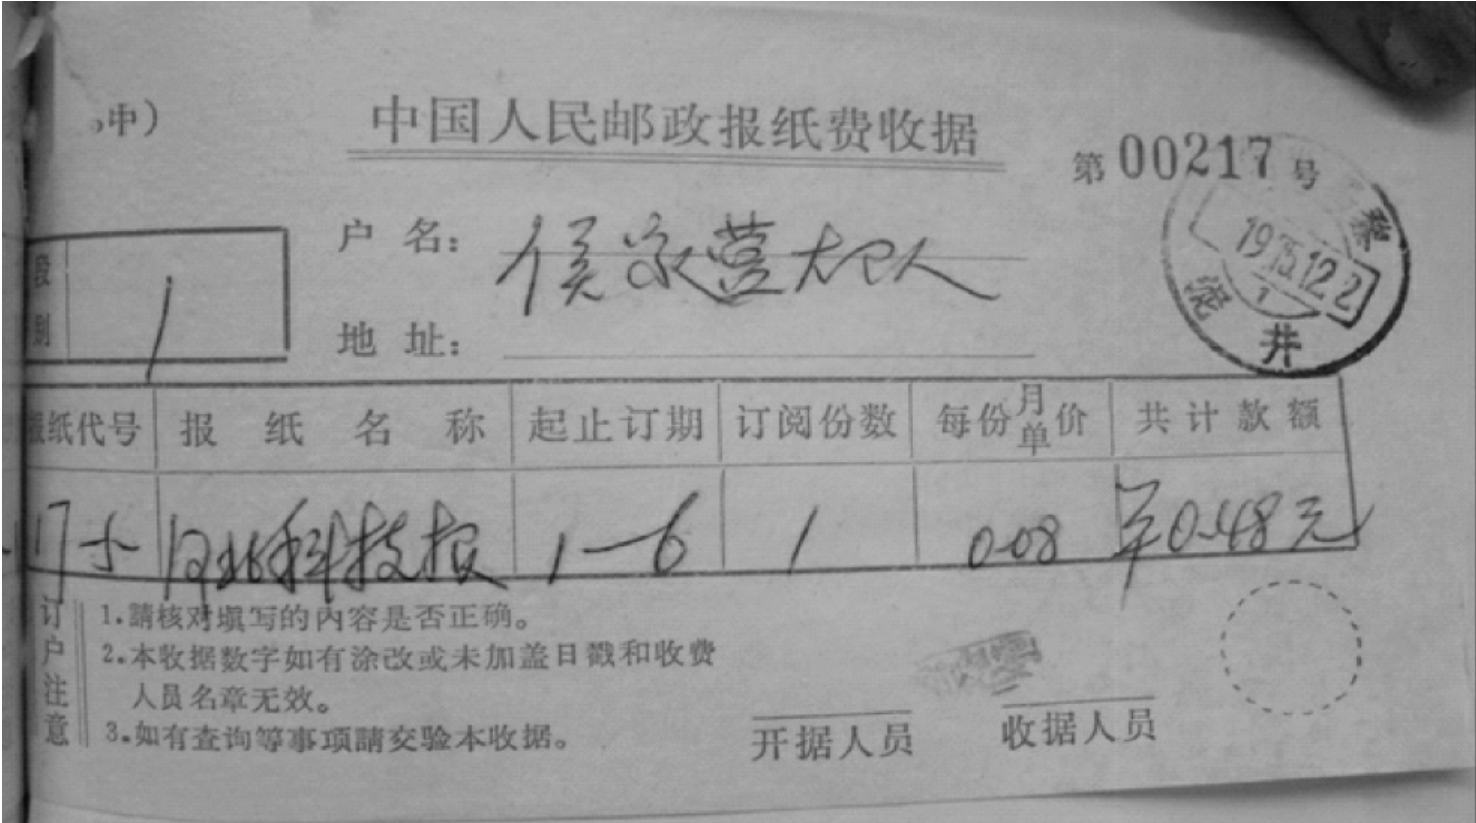 中）
中国人民邮政报纸费收据
第00217号
段别
1
户 名：
侯家营大队
地 址：
黎
1975.12.2
1
泥
井
报纸代号 报纸名称 起止订期 订阅份数 每份月单价 共计款额
17-5 河北科技报 1—6 1 0.08 0.48元
订户注意
1.請核对填写的内容是否正确。
2.本收据数字如有涂改或未加盖日戳和收费
人员名章无效。
3.如有查询等事项請交验本收据。
开据人员
收据人员